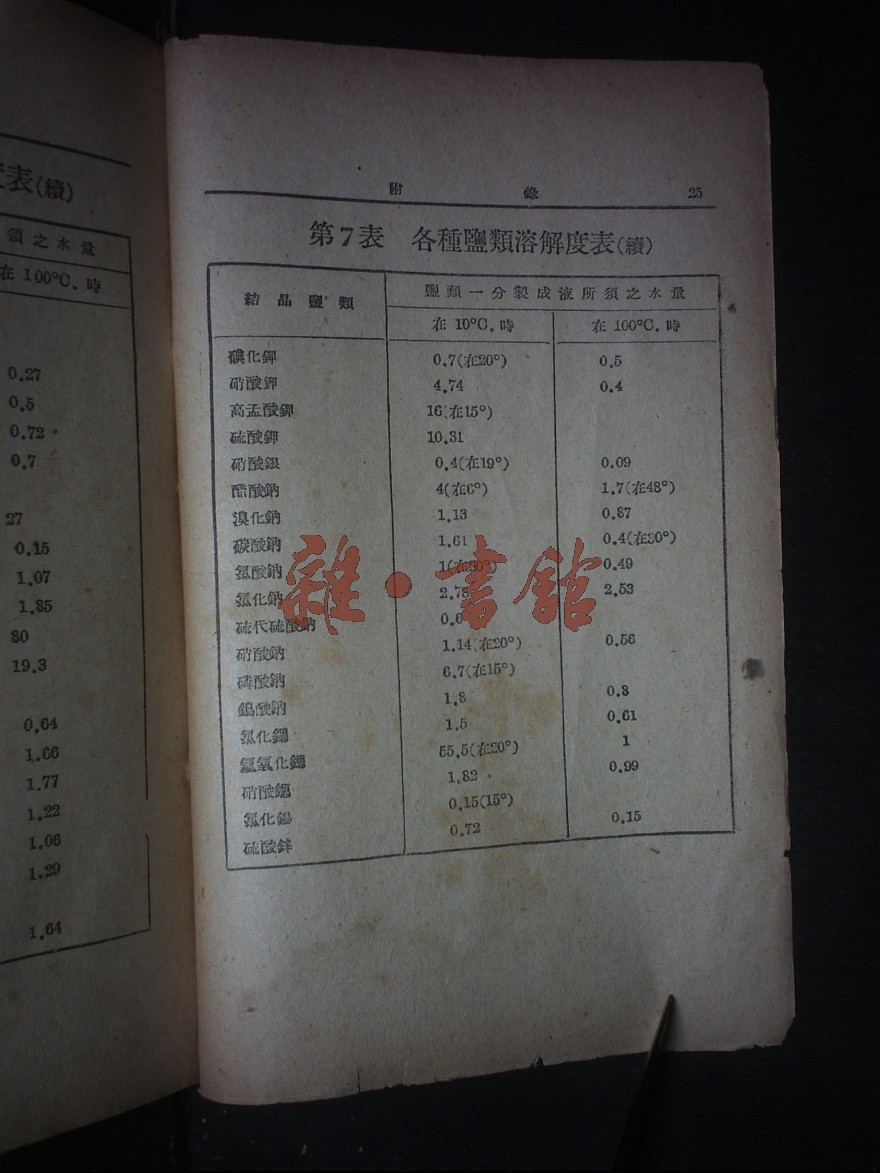 表(續)
須之水量
在 100°C. 時
0.27
0.5
0.72
0.7
27
0.15
1.07
1.85
80
19.3
0.64
1.66
1.77
1.22
1.06
1.29
1.64
附 錄 25
第7表 各種鹽類溶解度表(續)
結晶鹽類 鹽類一分製成液所須之水量
在 10°C. 時 在 100°C. 時
碘化鉀 0.7(在20°) 0.5
硝酸鉀 4.74 0.4
高孟酸鉀 16(在15°)
硫酸鉀 10.31
硝酸銀 0.4(在19°) 0.09
醋酸鈉 4(在6°) 1.7(在48°)
溴化鈉 1.13 0.87
碳酸鈉 1.61 0.4(在30°)
氯酸鈉 0.49
氯化鈉 2.53
硫代硫酸鈉
硝酸鈉 1.14(在20°) 0.56
磷酸鈉 6.7(在15°)
鎢酸鈉 1.8 0.8
氯化鍶 1.5 0.61
氫氧化鍶 55.5(在20°) 1
硝酸鍶 1.82 0.99
氯化錫 0.15(15°)
硫酸鋅 0.72 0.15
雜·書館